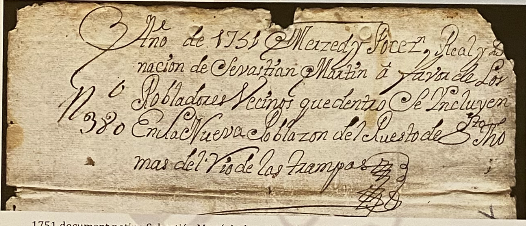 Año de 1751 Merzed y Pocezn, Real y do
nacion de Sevastian Martin â favor de Los
Pobladores Vecinos que dentro Se Incluyen
No 380
En la Nueva Poblazon del Puesto de Sto Tho
mas del Rio de las trampas
1751 document